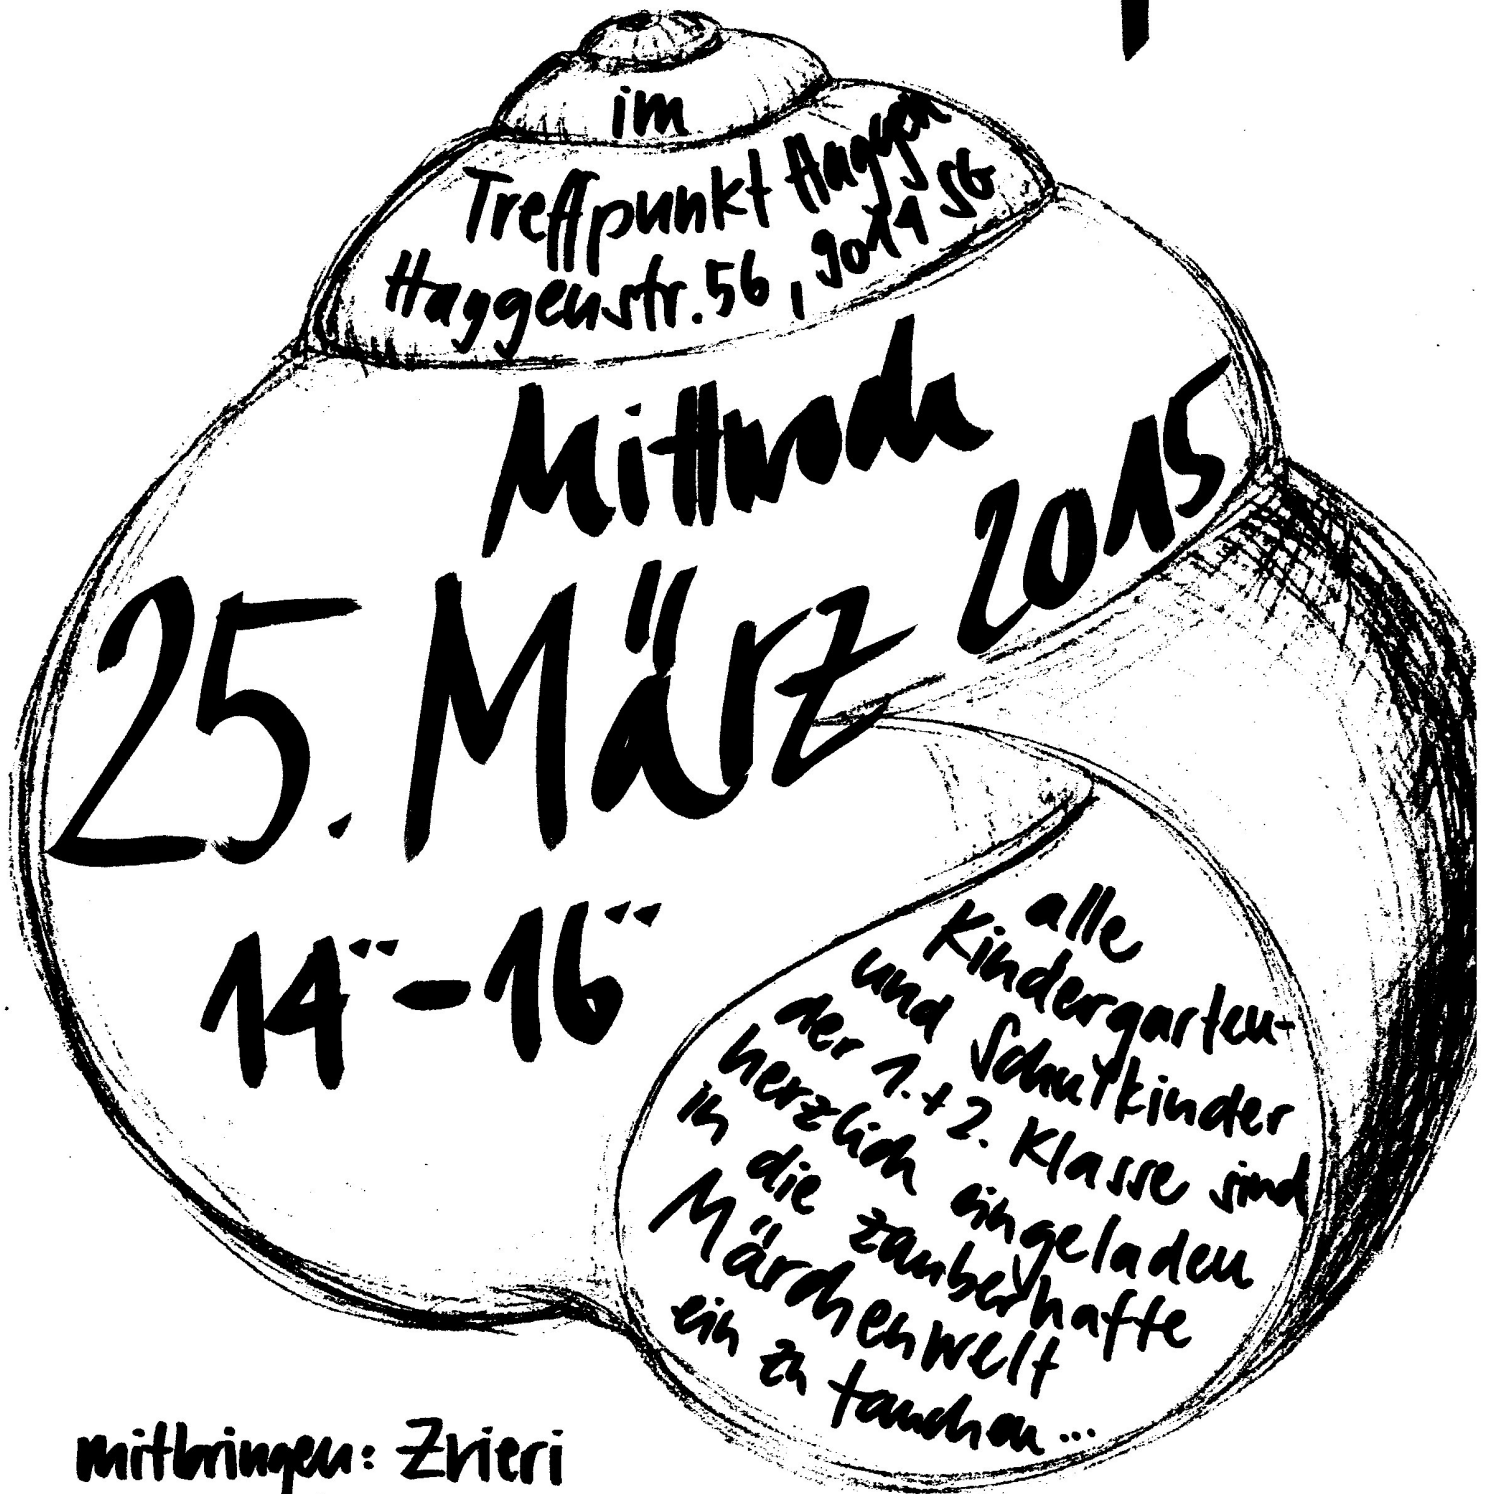 im
Treffpunkt Haggen
Haggenstr. 56, 9014 SG
Mittwoch
25. März 2015
14⁰⁰ - 16⁰⁰
alle
Kindergarten-
und Schulkinder
der 1. + 2. Klasse sind
herzlich eingeladen
in die zauberhafte
Märchenwelt
ein zu tauchen...
mitbringen: Zvieri